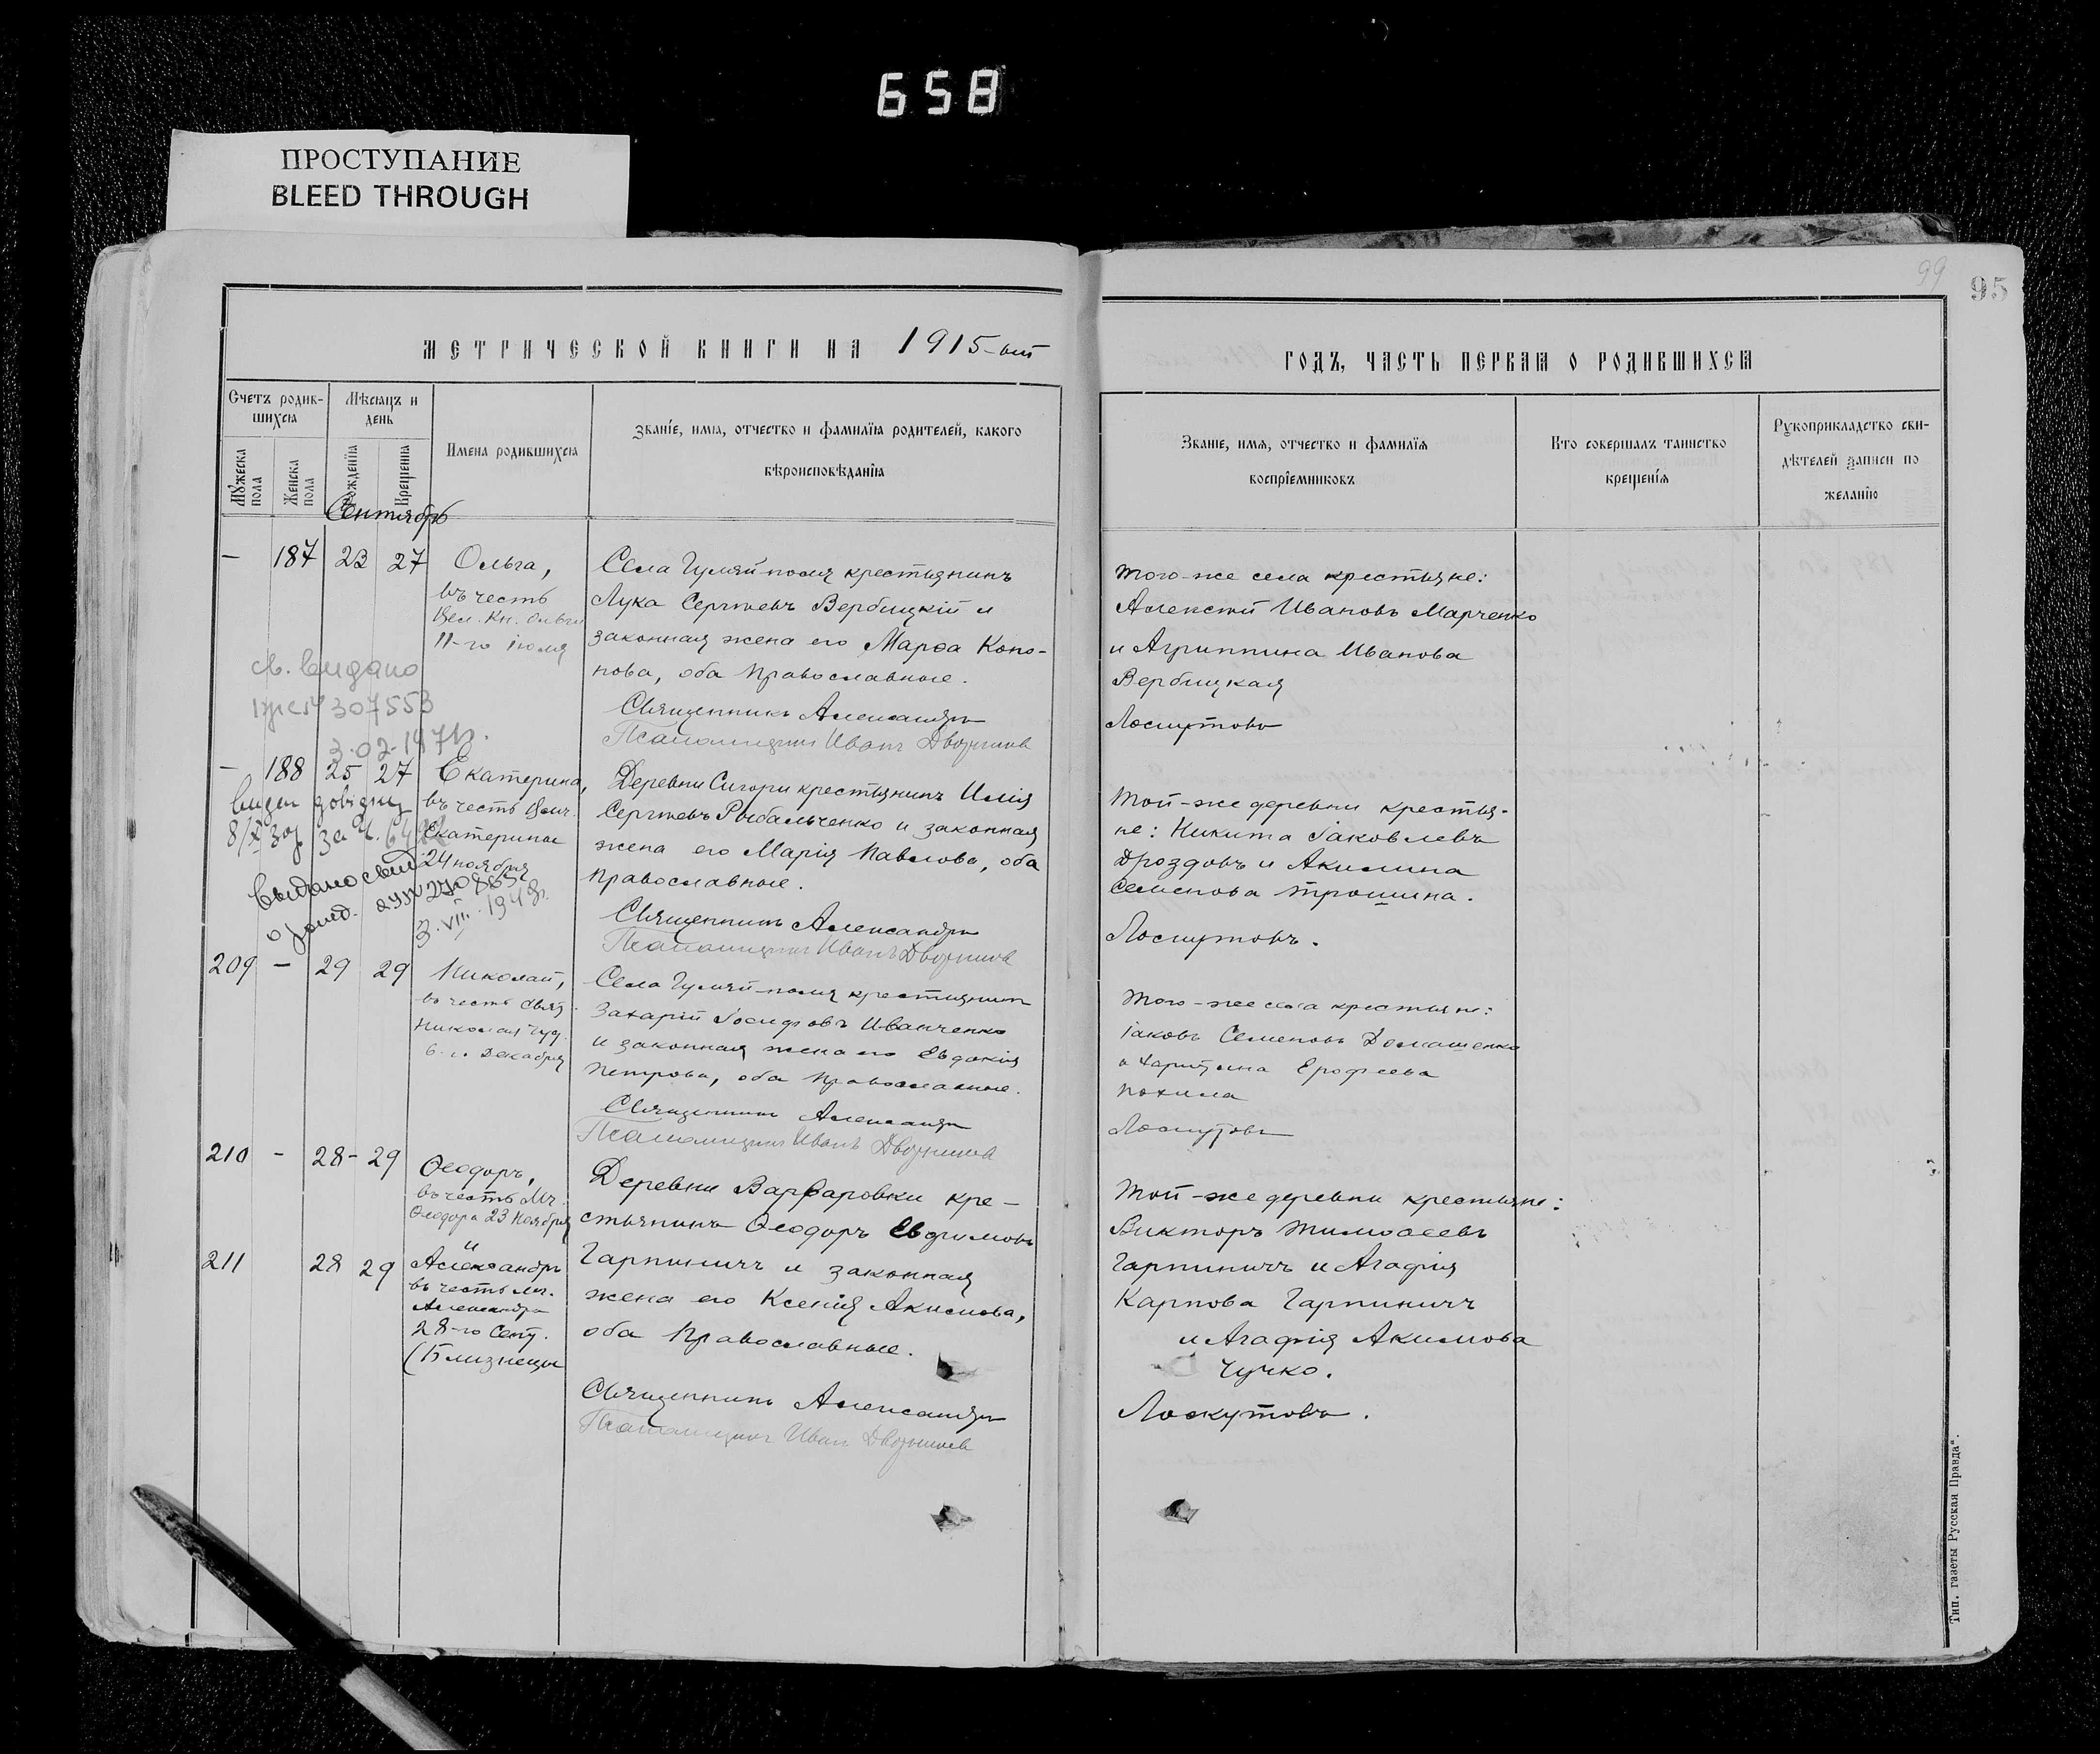 658
ПРОСТУПАНИЕ
BLEED THROUGH
99
95
МЕТРИЧЕСКОЙ КНИГИ НА 1915-ый
ГОДЪ, ЧАСТЬ ПЕРВАЯ О РОДИВШИХСЯ
Счетъ родив-
шихся
Мужеска
пола
Женска
пола
Мѣсяцъ и
день
Рожденїя
Крещенїя
Имена родившихся
Званїе, имя, отчество и фамилїя родителей, какого
вѣроисповѣданїя
Званїе, имя, отчество и фамилїя
воспрїемниковъ
Кто совершалъ таинство
крещенїя
Рукоприкладство сви-
дѣтелей записи по
желанїю
Сентябрь
— 187 23 27
Ольга,
въ честь
Вел. Кн. Ольги
11-го іюля
Села Гуляй-поля крестьянинъ
Лука Сергѣевъ Вербицкій и
законная жена его Марѳа Коно-
нова, оба Православные.
Священникъ Александръ
Псаломщикъ Иванъ
Того-же села крестьяне:
Алексѣй Ивановъ Марченко
и Агриппина Иванова
Вербицкая
Лоскутовъ
св. видано
307553
3.02.1947р.
— 188 25 27
Екатерина,
въ честь Вмч.
Екатерины
24 ноября
Деревни Сигори крестьянинъ Илія
Сергѣевъ Рыбальченко и законная
жена его Марія Павлова, оба
Православные.
Священникъ Александръ
Псаломщикъ Иванъ
Той-же деревни крестья-
не: Никита Іаковлевъ
Дроздовъ и Акилина
Семенова Трошина.
Лоскутовъ.
Выдано свид.
3.VIII.1948г.
209 — 29 29
Николай,
въ честь Свят.
Николая Чуд.
6-го Декабря
Села Гуляй-поля крестьянинъ
Захарій Іосифовъ Иванченко
и законная жена его Евдокія
Петрова, оба Православные.
Священникъ Александръ
Псаломщикъ Иванъ
Того-же села крестьяне:
Іаковъ Семеновъ Домашенко
и Харитина Ерофеева
Похила
Лоскутовъ
210 - 28- 29
Ѳеодоръ,
въ честь Мч.
Ѳеодора 23 Ноября
и
211 28 29
Александръ
въ честь Мч.
Александра
28-го Сент.
(Близнецы
Деревни Варваровки кре-
стьянинъ Ѳеодоръ Евфимовъ
Гарпиничъ и законная
жена его Ксенія Акимова,
оба Православные.
Священникъ Александръ
Псаломщикъ Иванъ
Той-же деревни крестьяне:
Викторъ Тимоѳеевъ
Гарпиничъ и Агафія
Карпова Гарпиничъ
и Агафія Акимова
Чучко.
Лоскутовъ.
Тип. газеты Русская Правда".